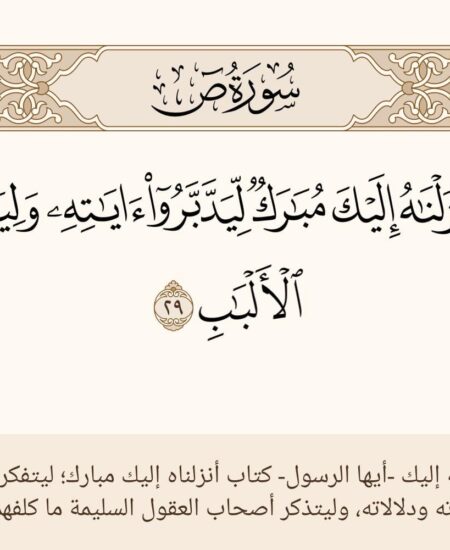 سُورَةُ صٓ
إِلَيۡكَ مُبَٰرَكٞ لِّيَدَّبَّرُوٓاْ ءَايَٰتِهِۦ
ٱلۡأَلۡبَٰبِ ٢٩
إليك -أيها الرسول- كتاب أنزلناه إليك مبارك؛ ليتفكر
ودلالاته، وليتذكر أصحاب العقول السليمة ما